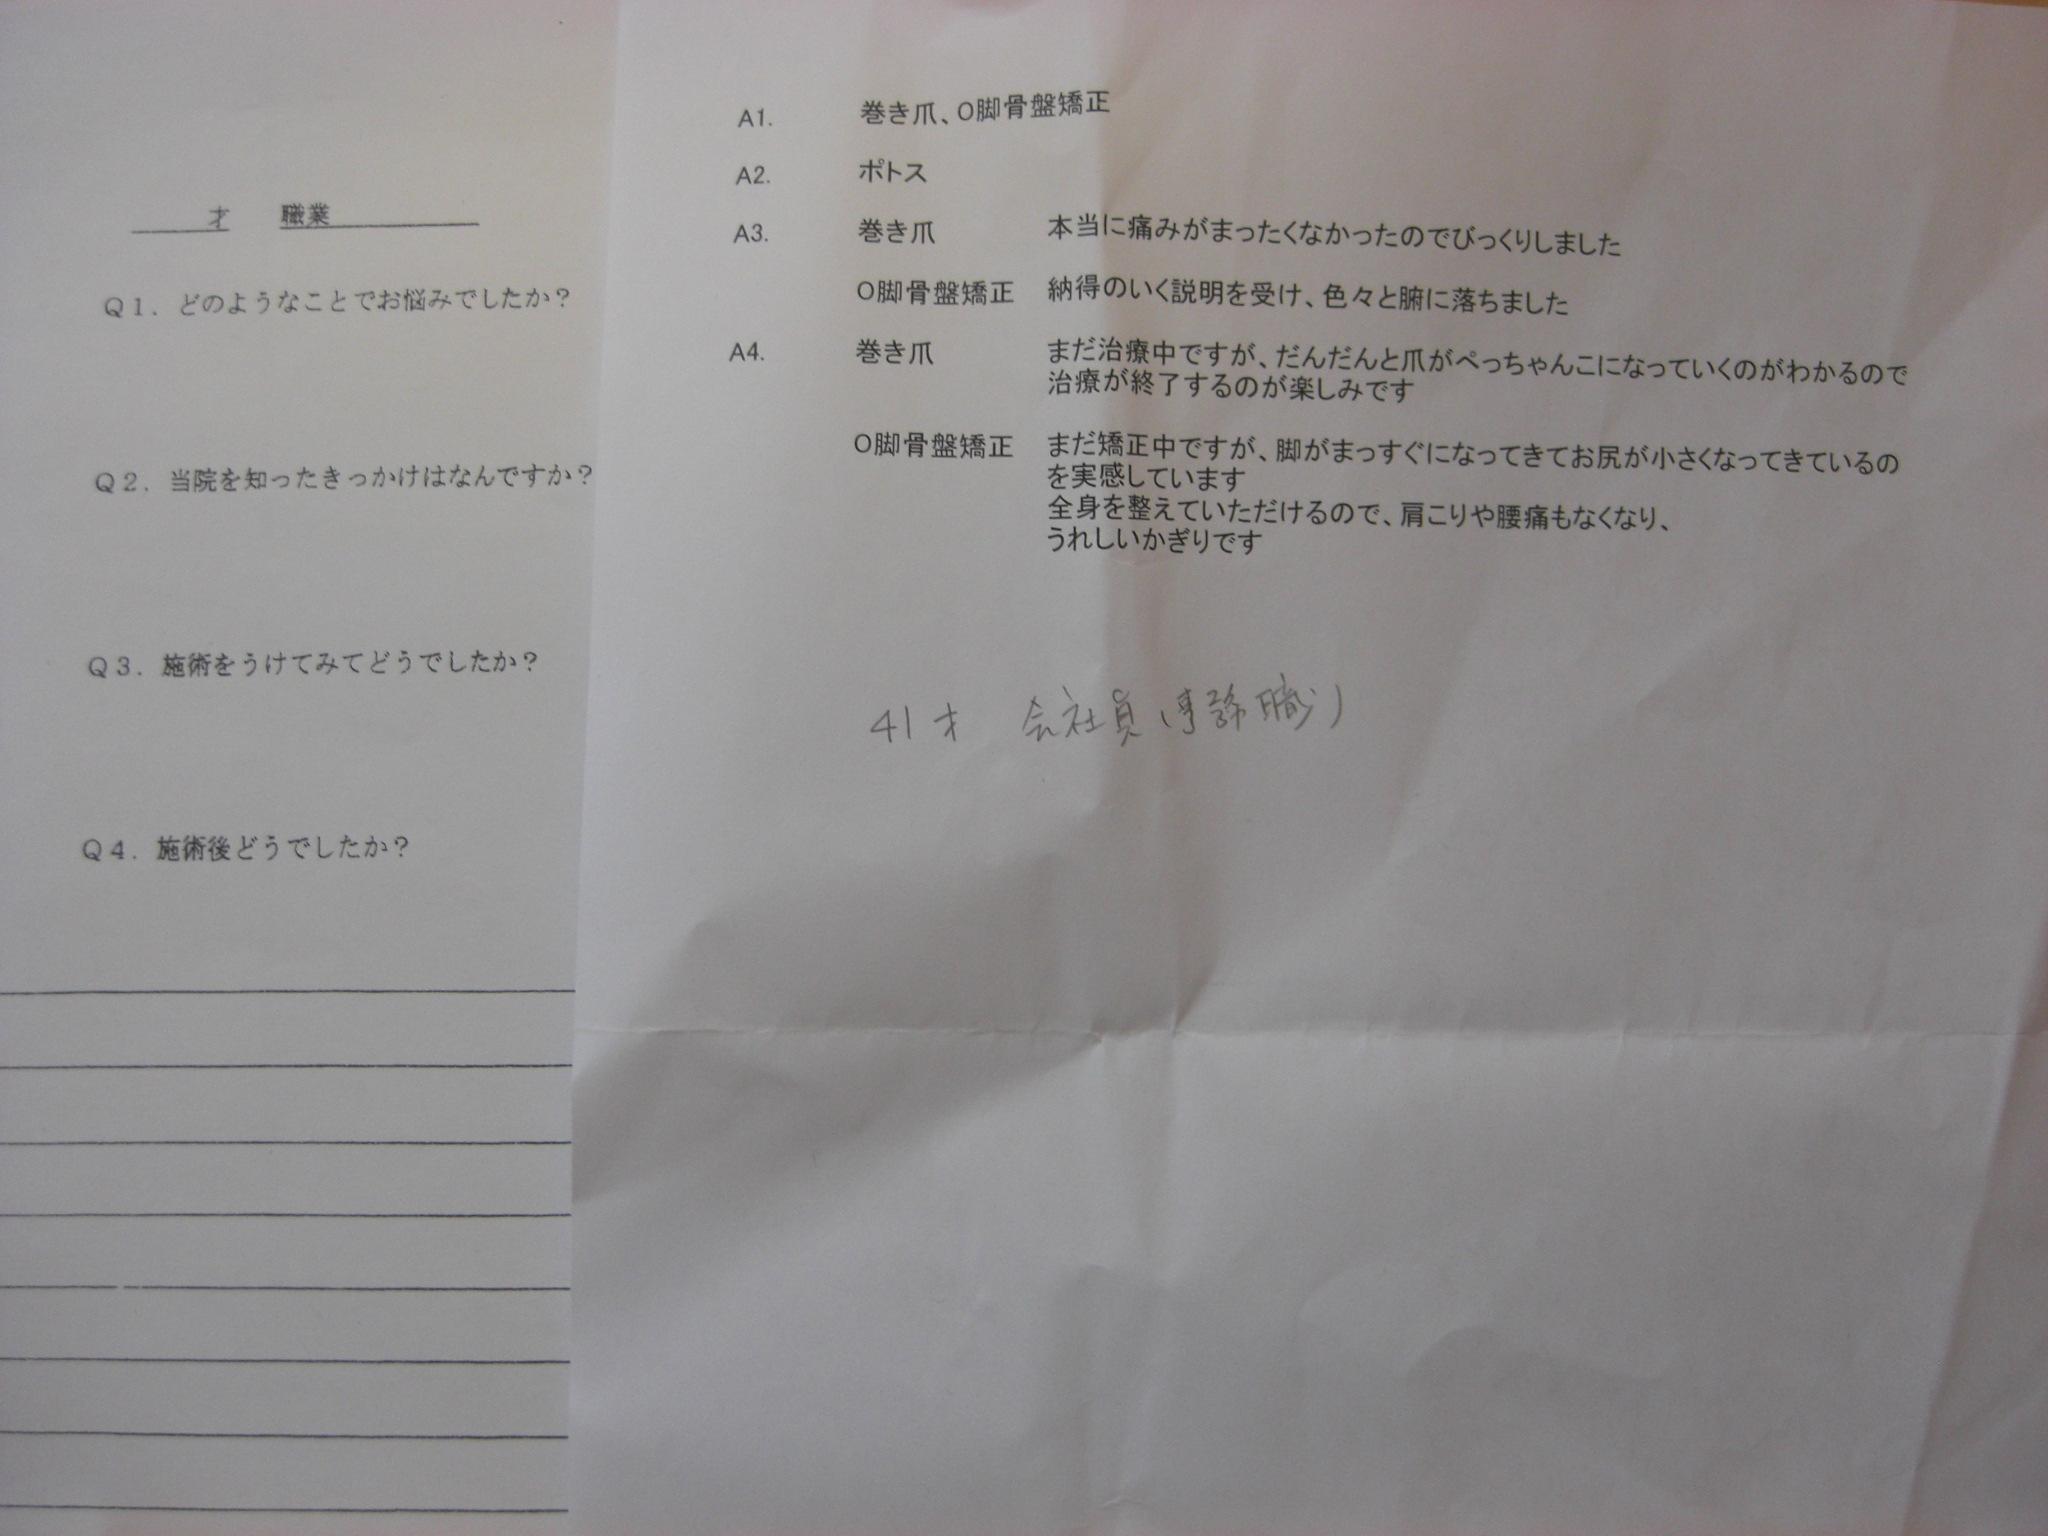 才 職業
Q1．どのようなことでお悩みでしたか？
Q2．当院を知ったきっかけはなんですか？
Q3．施術をうけてみてどうでしたか？
Q4．施術後どうでしたか？
A1. 巻き爪、O脚骨盤矯正
A2. ポトス
A3. 巻き爪 本当に痛みがまったくなかったのでびっくりしました
O脚骨盤矯正 納得のいく説明を受け、色々と腑に落ちました
A4. 巻き爪 まだ治療中ですが、だんだんと爪がぺっちゃんこになっていくのがわかるので
治療が終了するのが楽しみです
O脚骨盤矯正 まだ矯正中ですが、脚がまっすぐになってきてお尻が小さくなってきているの
を実感しています
全身を整えていただけるので、肩こりや腰痛もなくなり、
うれしいかぎりです
41才 会社員（事務職）